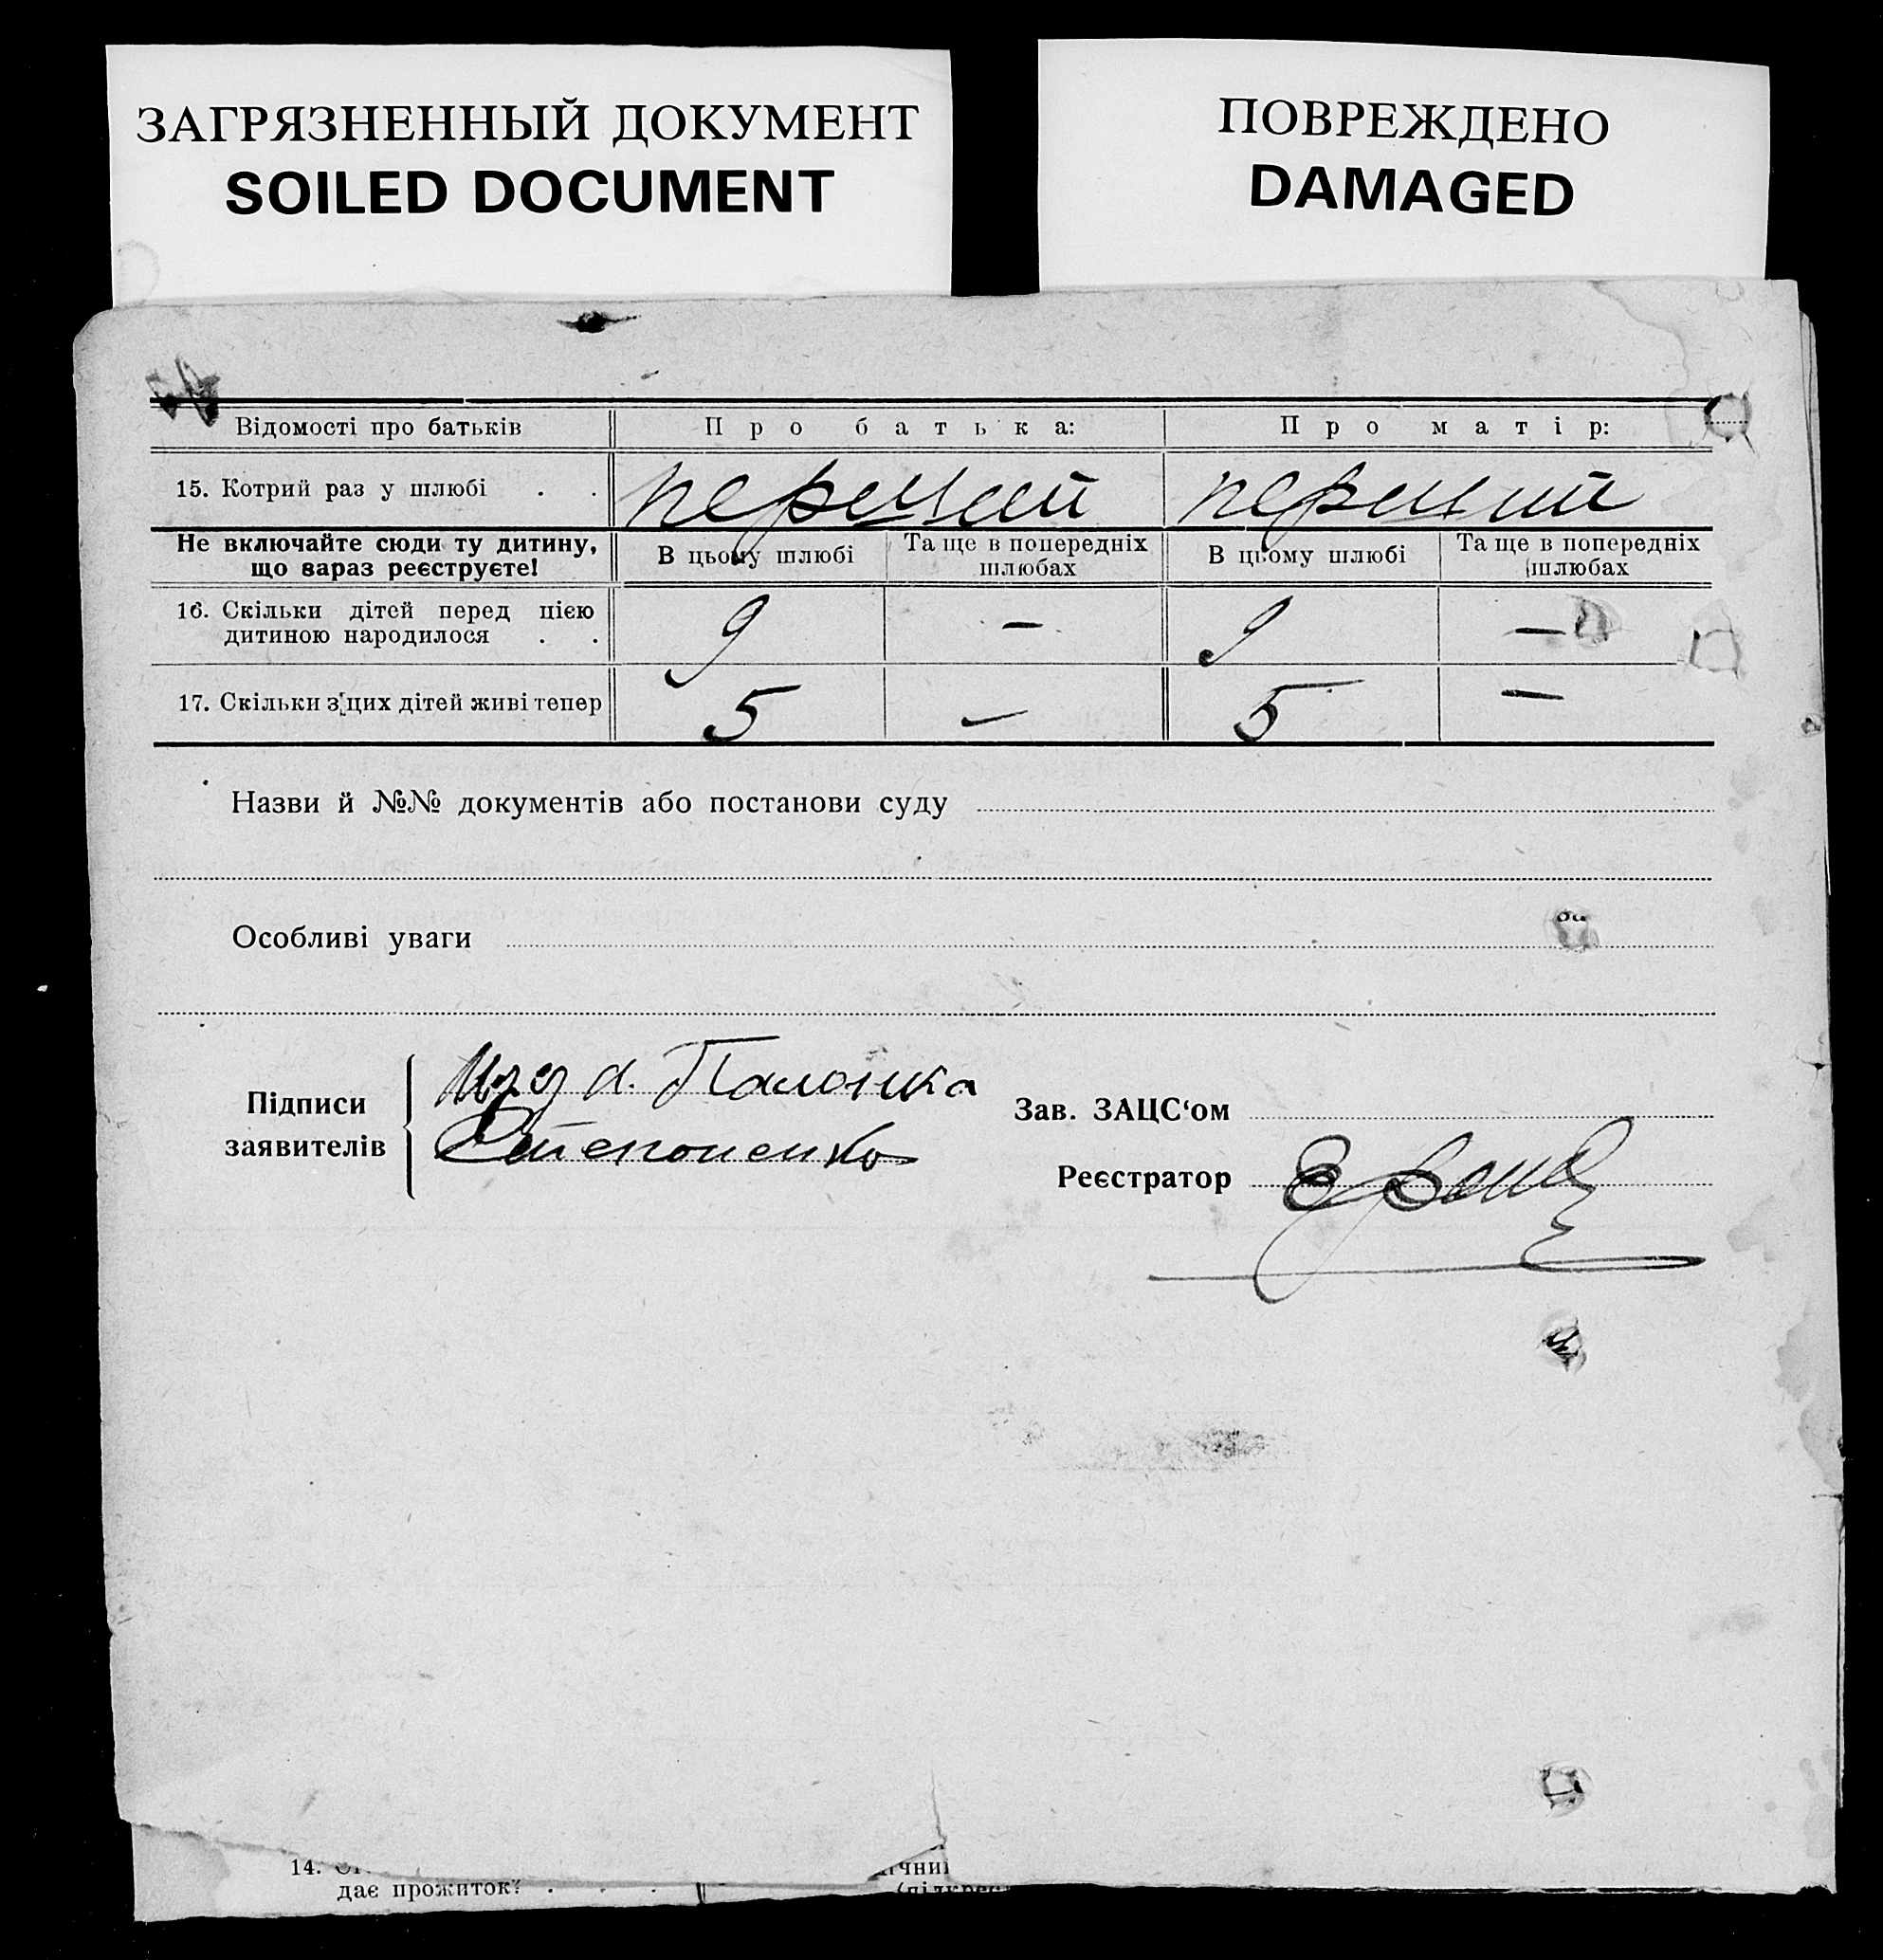 ЗАГРЯЗНЕННЫЙ ДОКУМЕНТ
SOILED DOCUMENT
ПОВРЕЖДЕНО
DAMAGED
Відомості про батьків Про батька: Про матір:
15. Котрий раз у шлюбі . . перший перший
Не включайте сюди ту дитину, що вараз реєструєте! В цьому шлюбі Та ще в попередніх шлюбах В цьому шлюбі Та ще в попередніх шлюбах
16. Скільки дітей перед цією
дитиною народилося . . 9 — 9 —
17. Скільки з цих дітей живі тепер 5 — 5 —
Назви й №№ документів або постанови суду
Особливі уваги
Підписи
заявителів
Степоненко
Зав. ЗАЦС‘ом
Реєстратор
14.
дає прожиток? . . .